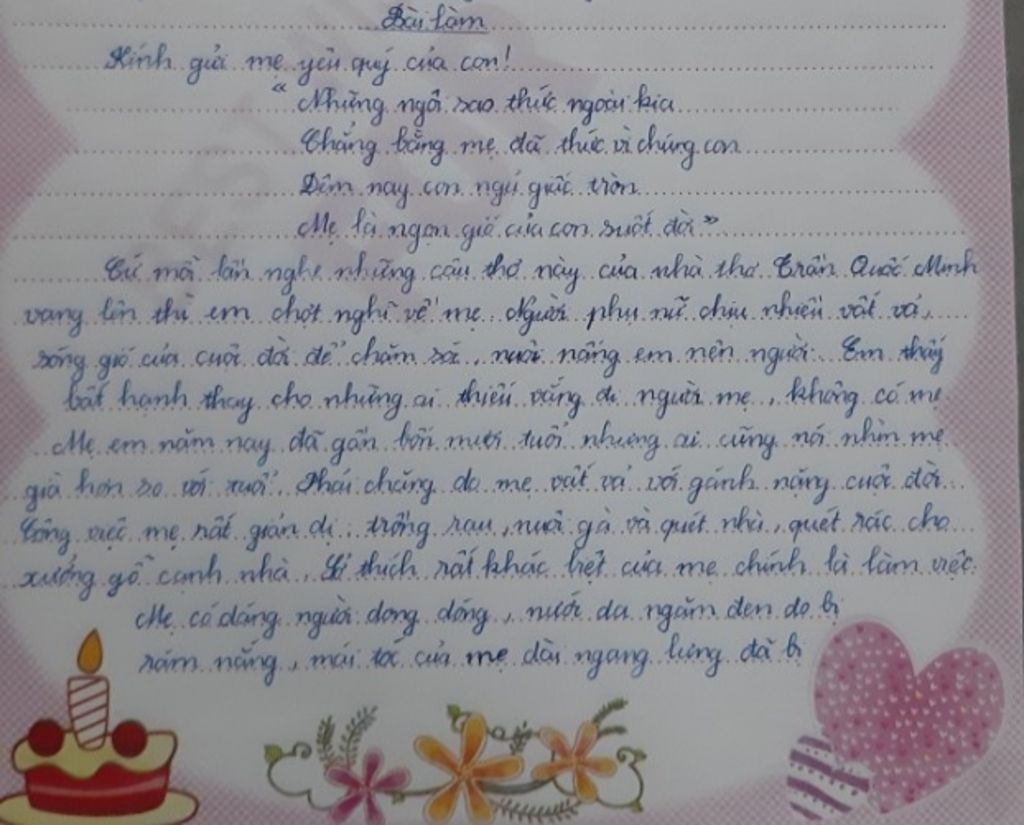 Bài làm
Kính gửi mẹ yêu quý của con!
"Những ngôi sao thức ngoài kia
Chẳng bằng mẹ đã thức vì chúng con
Đêm nay con ngủ giấc tròn
Mẹ là ngọn gió của con suốt đời"
Cứ mỗi lần nghe những câu thơ này của nhà thơ Trần Quốc Minh
vang lên thì em chợt nghĩ về mẹ. Người phụ nữ chịu nhiều vất vả,
sóng gió của cuộc đời để chăm sóc, nuôi nấng em nên người. Em thấy
bất hạnh thay cho những ai thiếu vắng đi người mẹ, không có mẹ
Mẹ em năm nay đã gần bốn mươi tuổi nhưng ai cũng nói nhìn mẹ
già hơn so với tuổi. Phải chăng do mẹ vất vả với gánh nặng cuộc đời.
Công việc mẹ rất giản dị: trồng rau, nuôi gà và quét nhà, quét rác cho
xưởng gỗ cạnh nhà. Sở thích rất khác biệt của mẹ chính là làm việc.
Mẹ có dáng người dong dỏng, nước da ngăm đen do bị
rám nắng, mái tóc của mẹ dài ngang lưng đã bị